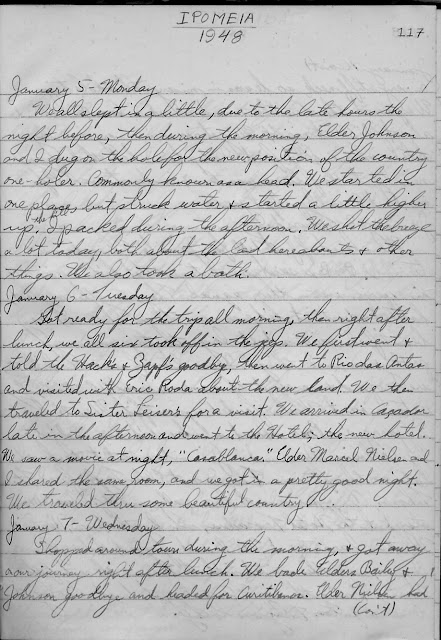 IPOMEIA
1948
117
January 5 - Monday
We all slept in a little, due to the late hours the
night before, then during the morning, Elder Johnson
and I dug on the hole for the new position of the country
one-holer. Commonly known as a head. We started in
one place, but struck water & started a little higher
up the hill. I packed during the afternoon. We shot the breeze
a lot today, both about the land hereabouts & other
things. We also took a bath.
January 6 - Tuesday
Got ready for the trip all morning, then right after
lunch, we all six took off in the jeep. We first went &
told the Hack's & Zapf's goodby, then went to Rio das Antas
and visited with Eric Roda about the new land. We then
traveled to Sister Leiser's for a visit. We arrived in Caçador
late in the afternoon and went to the Hotel, the new hotel.
We saw a movie at night, "Casablanca." Elder Marcel Nielsen and
I shared the same room, and we got in a pretty good night.
We traveled thru some beautiful country.
January 7 - Wednesday
Shopped around town during the morning, & got away
on our journey right after lunch. We bade Elders Bailey &
Johnson goodbye and headed for Curitibanos. Elder Nielsen had
(Con't)